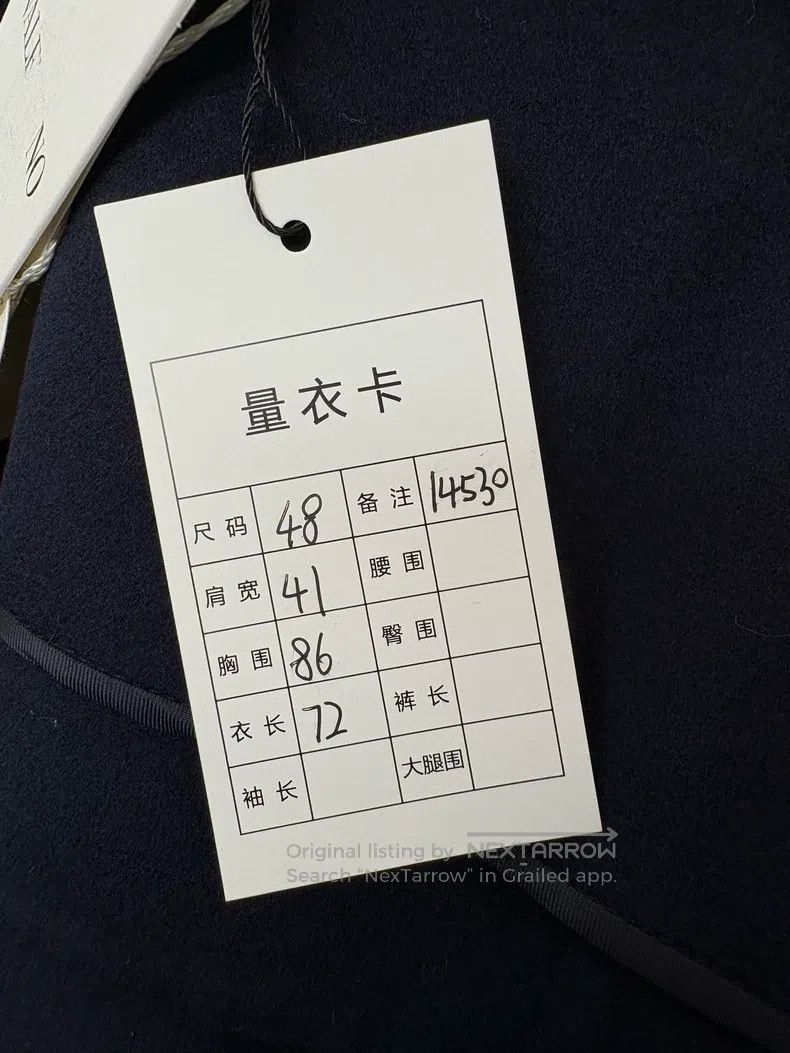 NO
量衣卡
尺码 48 备注 14530
肩宽 41 腰围
胸围 86 臀围
衣长 72 裤长
袖长 大腿围
Original listing by NEXTARROW
Search "NexTarrow" in Grailed app.